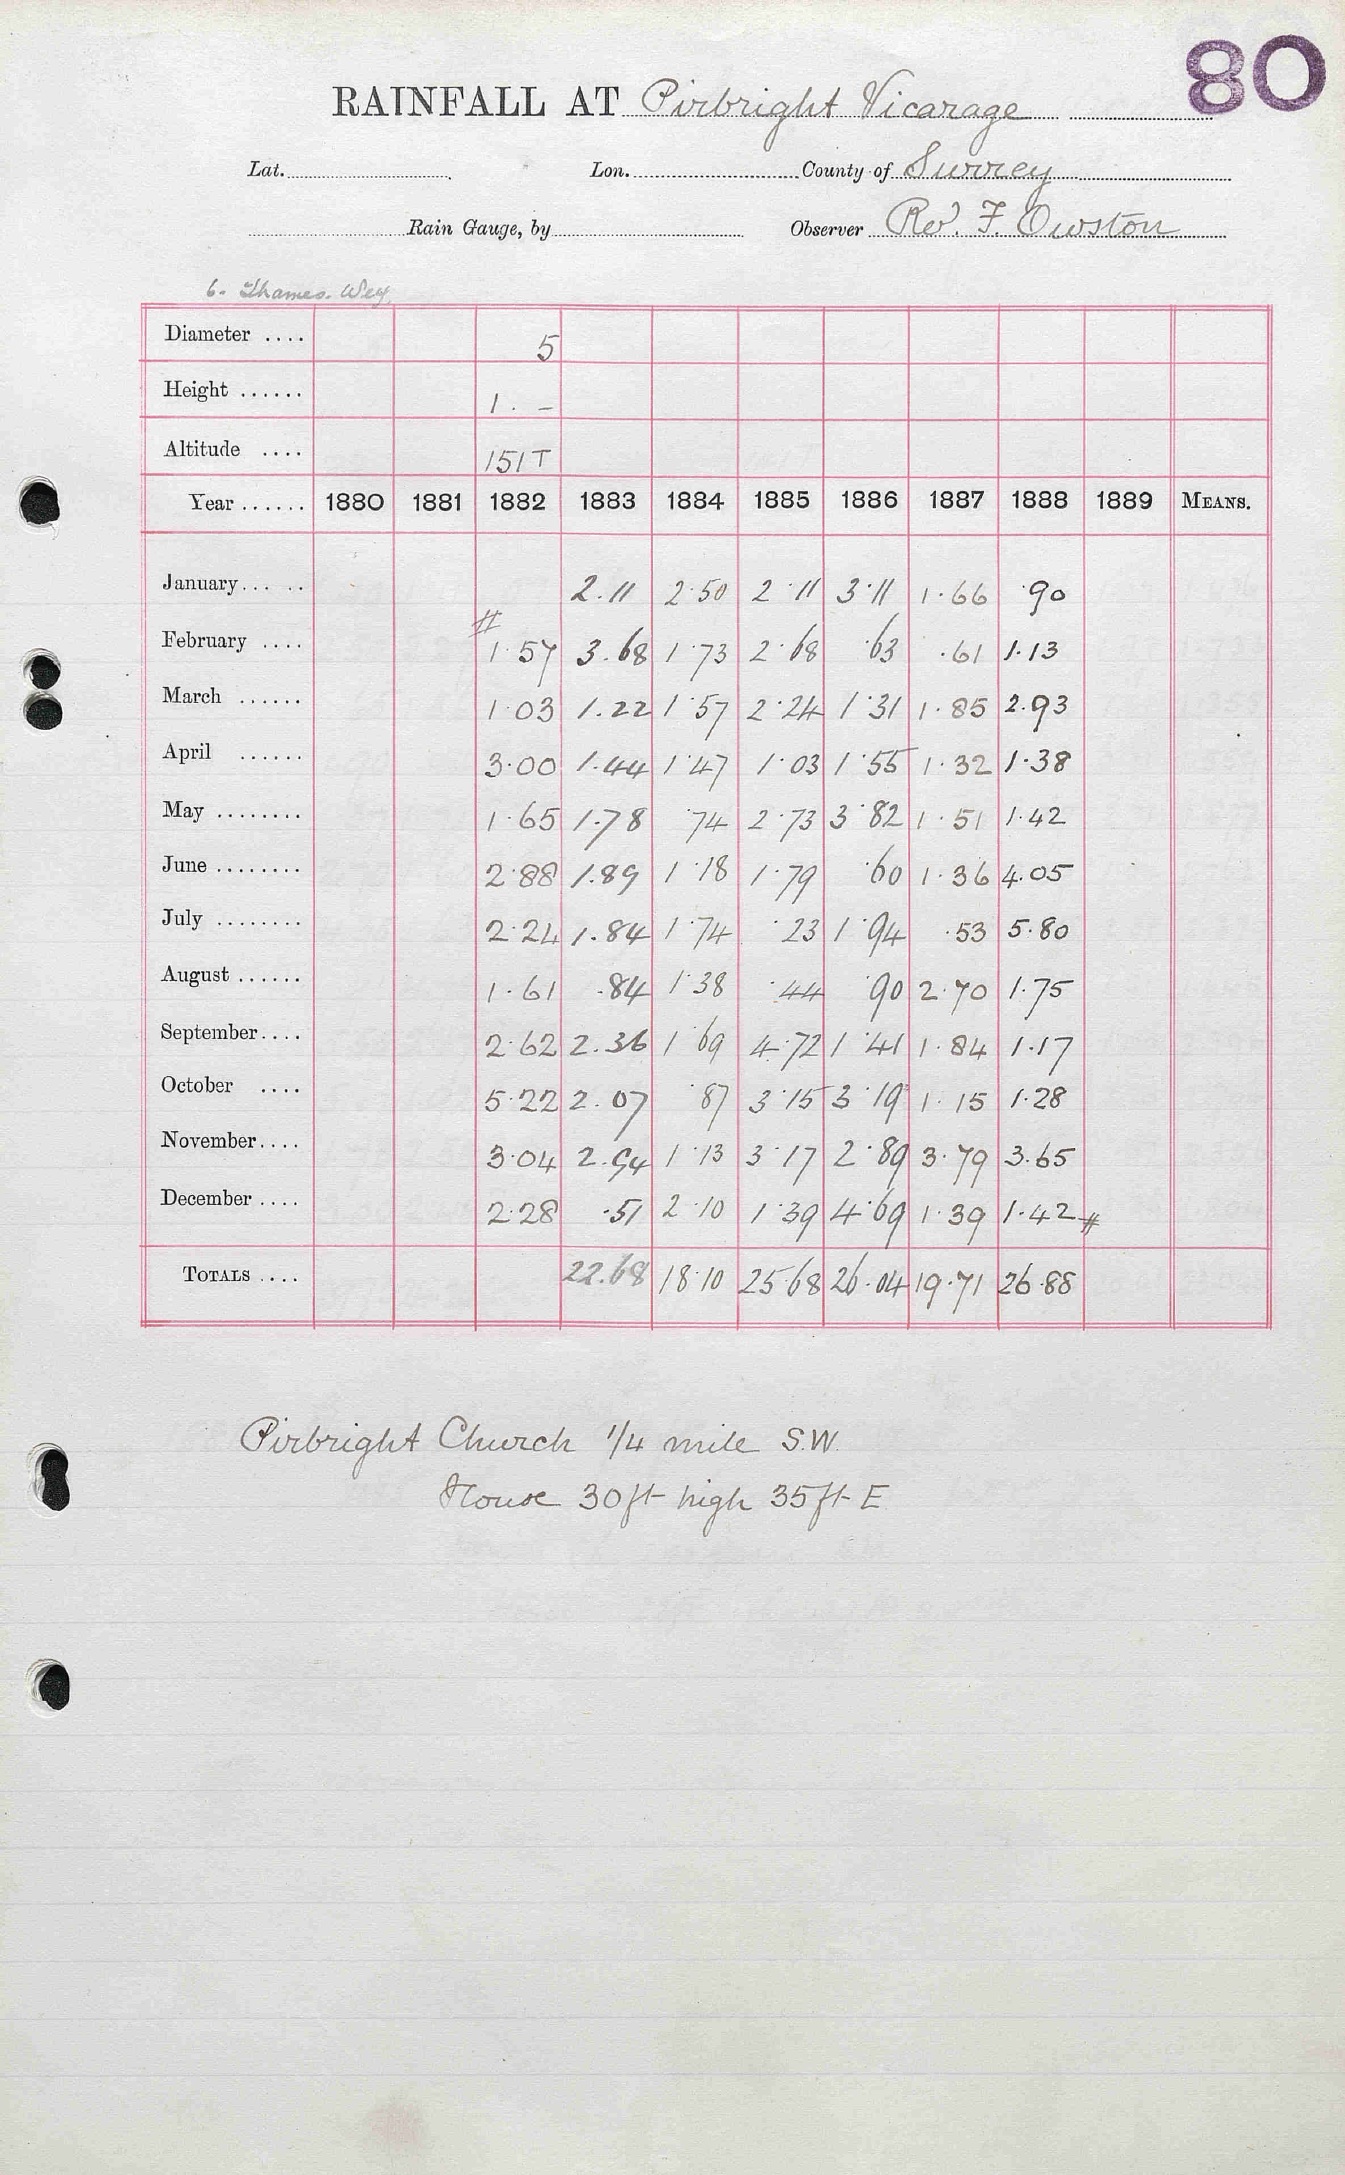 80
RAINFALL AT Pirbright Vicarage
Lat. Lon. County of Surrey
Rain Gauge, by Observer Rev. F. Owston
6. Thames. Wey
Diameter .... 5
Height ...... 1. –
Altitude .... 151T
Year ...... 1880 1881 1882 1883 1884 1885 1886 1887 1888 1889 MEANS.
January... .. 2.11 2.50 2.11 3.11 1.66 .90
February .... # 1.57 3.68 1.73 2.68 .63 .61 1.13
March ...... 1.03 1.22 1.57 2.24 1.31 1.85 2.93
April ...... 3.00 1.44 1.47 1.03 1.55 1.32 1.38
May ........ 1.65 1.78 .74 2.73 3.82 1.51 1.42
June ........ 2.88 1.89 1.18 1.79 .60 1.36 4.05
July ........ 2.24 1.84 1.74 .23 1.94 .53 5.80
August ...... 1.61 .84 1.38 .44 .90 2.70 1.75
September.... 2.62 2.36 1.69 4.72 1.41 1.84 1.17
October .... 5.22 2.07 .87 3.15 3.19 1.15 1.28
November.... 3.04 2.94 1.13 3.17 2.89 3.79 3.65
December .... 2.28 .51 2.10 1.39 4.69 1.39 1.42 #
TOTALS .... 22.68 18.10 25.68 26.04 19.71 26.88
Pirbright Church 1/4 mile S.W.
House 30ft high 35ft E